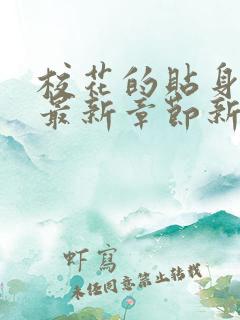 校花的貼身
最新章節新
虾寫
未经同意禁止转载